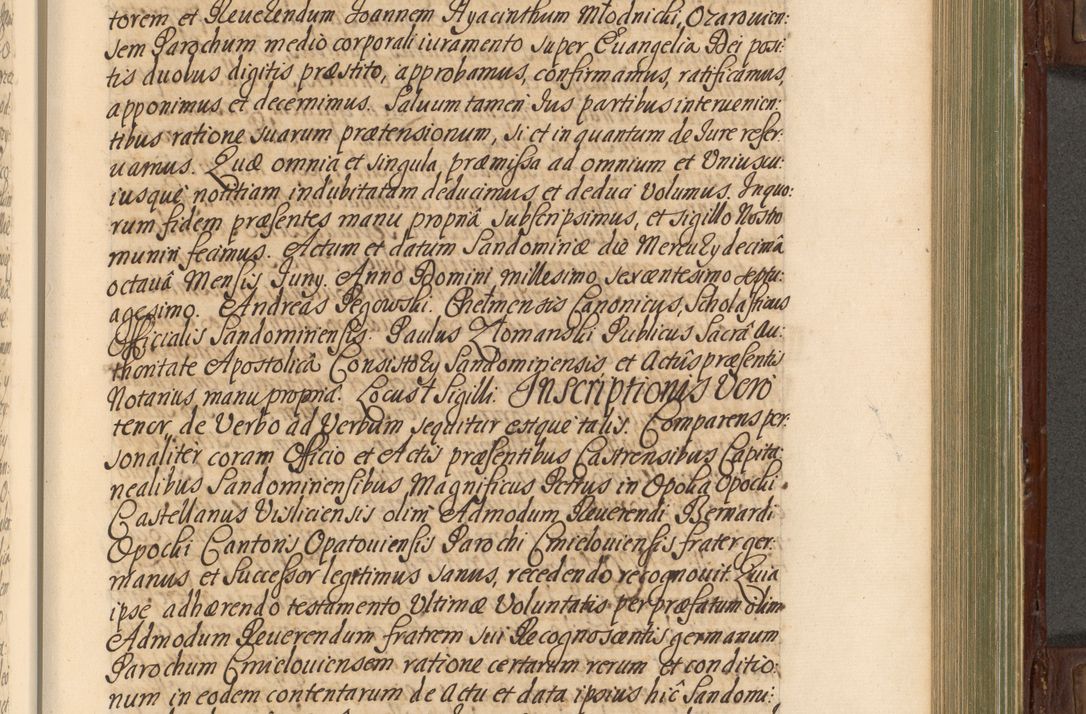 torem et Reuerendum Joannem Hyacinthum Młodnicki, Ozarouien:
sem Parochum medio corporali iuramento super Euangelia Dei posi:
tis duobus digitis præstito, approbamus, confirmamus, ratificamus,
apponimus et decernimus. Saluum tamen Jus partibus interuenien:
tibus ratione suarum prætensionum, si et in quantum de Jure reser:
uamus. Quæ omnia et singula præmissa ad omnium et Uniuscu:
iusque notitiam indubitatam deducimus, et deduci Volumus. In quo:
rum fidem præsentes manu propriâ subscripsimus, et sigillo Nostro
muniri fecimus. Actum et datum Sandomiriæ die Mercurÿ decimâ
octauâ Mensis Junÿ. Anno Domini millesimo sexcentesimo septu:
agesimo. Andreas Pegowski. Chelmensis Canonicus, Scholasticus
Officialis Sandomiriensis. Paulus Ztomanski Publicus Sacrâ Au:
thoritate Apostolicâ Consistorÿ Sandomiriensis et Actûs præsentis
Notarius, manu propriâ. Locus + Sigilli. Inscriptionis Vero
tenor de Verbo ad Verbum sequitur estque talis. Comparens per:
sonaliter coram Officio et Actis præsentibus Castrensibus Capita:
nealibus Sandomiriensibus Magnificus Petrus in Opoka Opocki
Castellanus Visliciensis olim Admodum Reuerendi Bernardi
Opocki Cantoris Opatouiensis Parochi Cmielouiensis frater ger:
manus et Successor legitimus sanus, recedendo recognouit. Quia
ipse adhærendo testamento Ultimæ Voluntatis per præfatum olim
Admodum Reuerendum fratrem sui Recognoscentis germanum
Parochum Cmielouiensem ratione certarum rerum et conditio:
num in eodem contentarum de Actu et data ipsius hîc Sandomi: